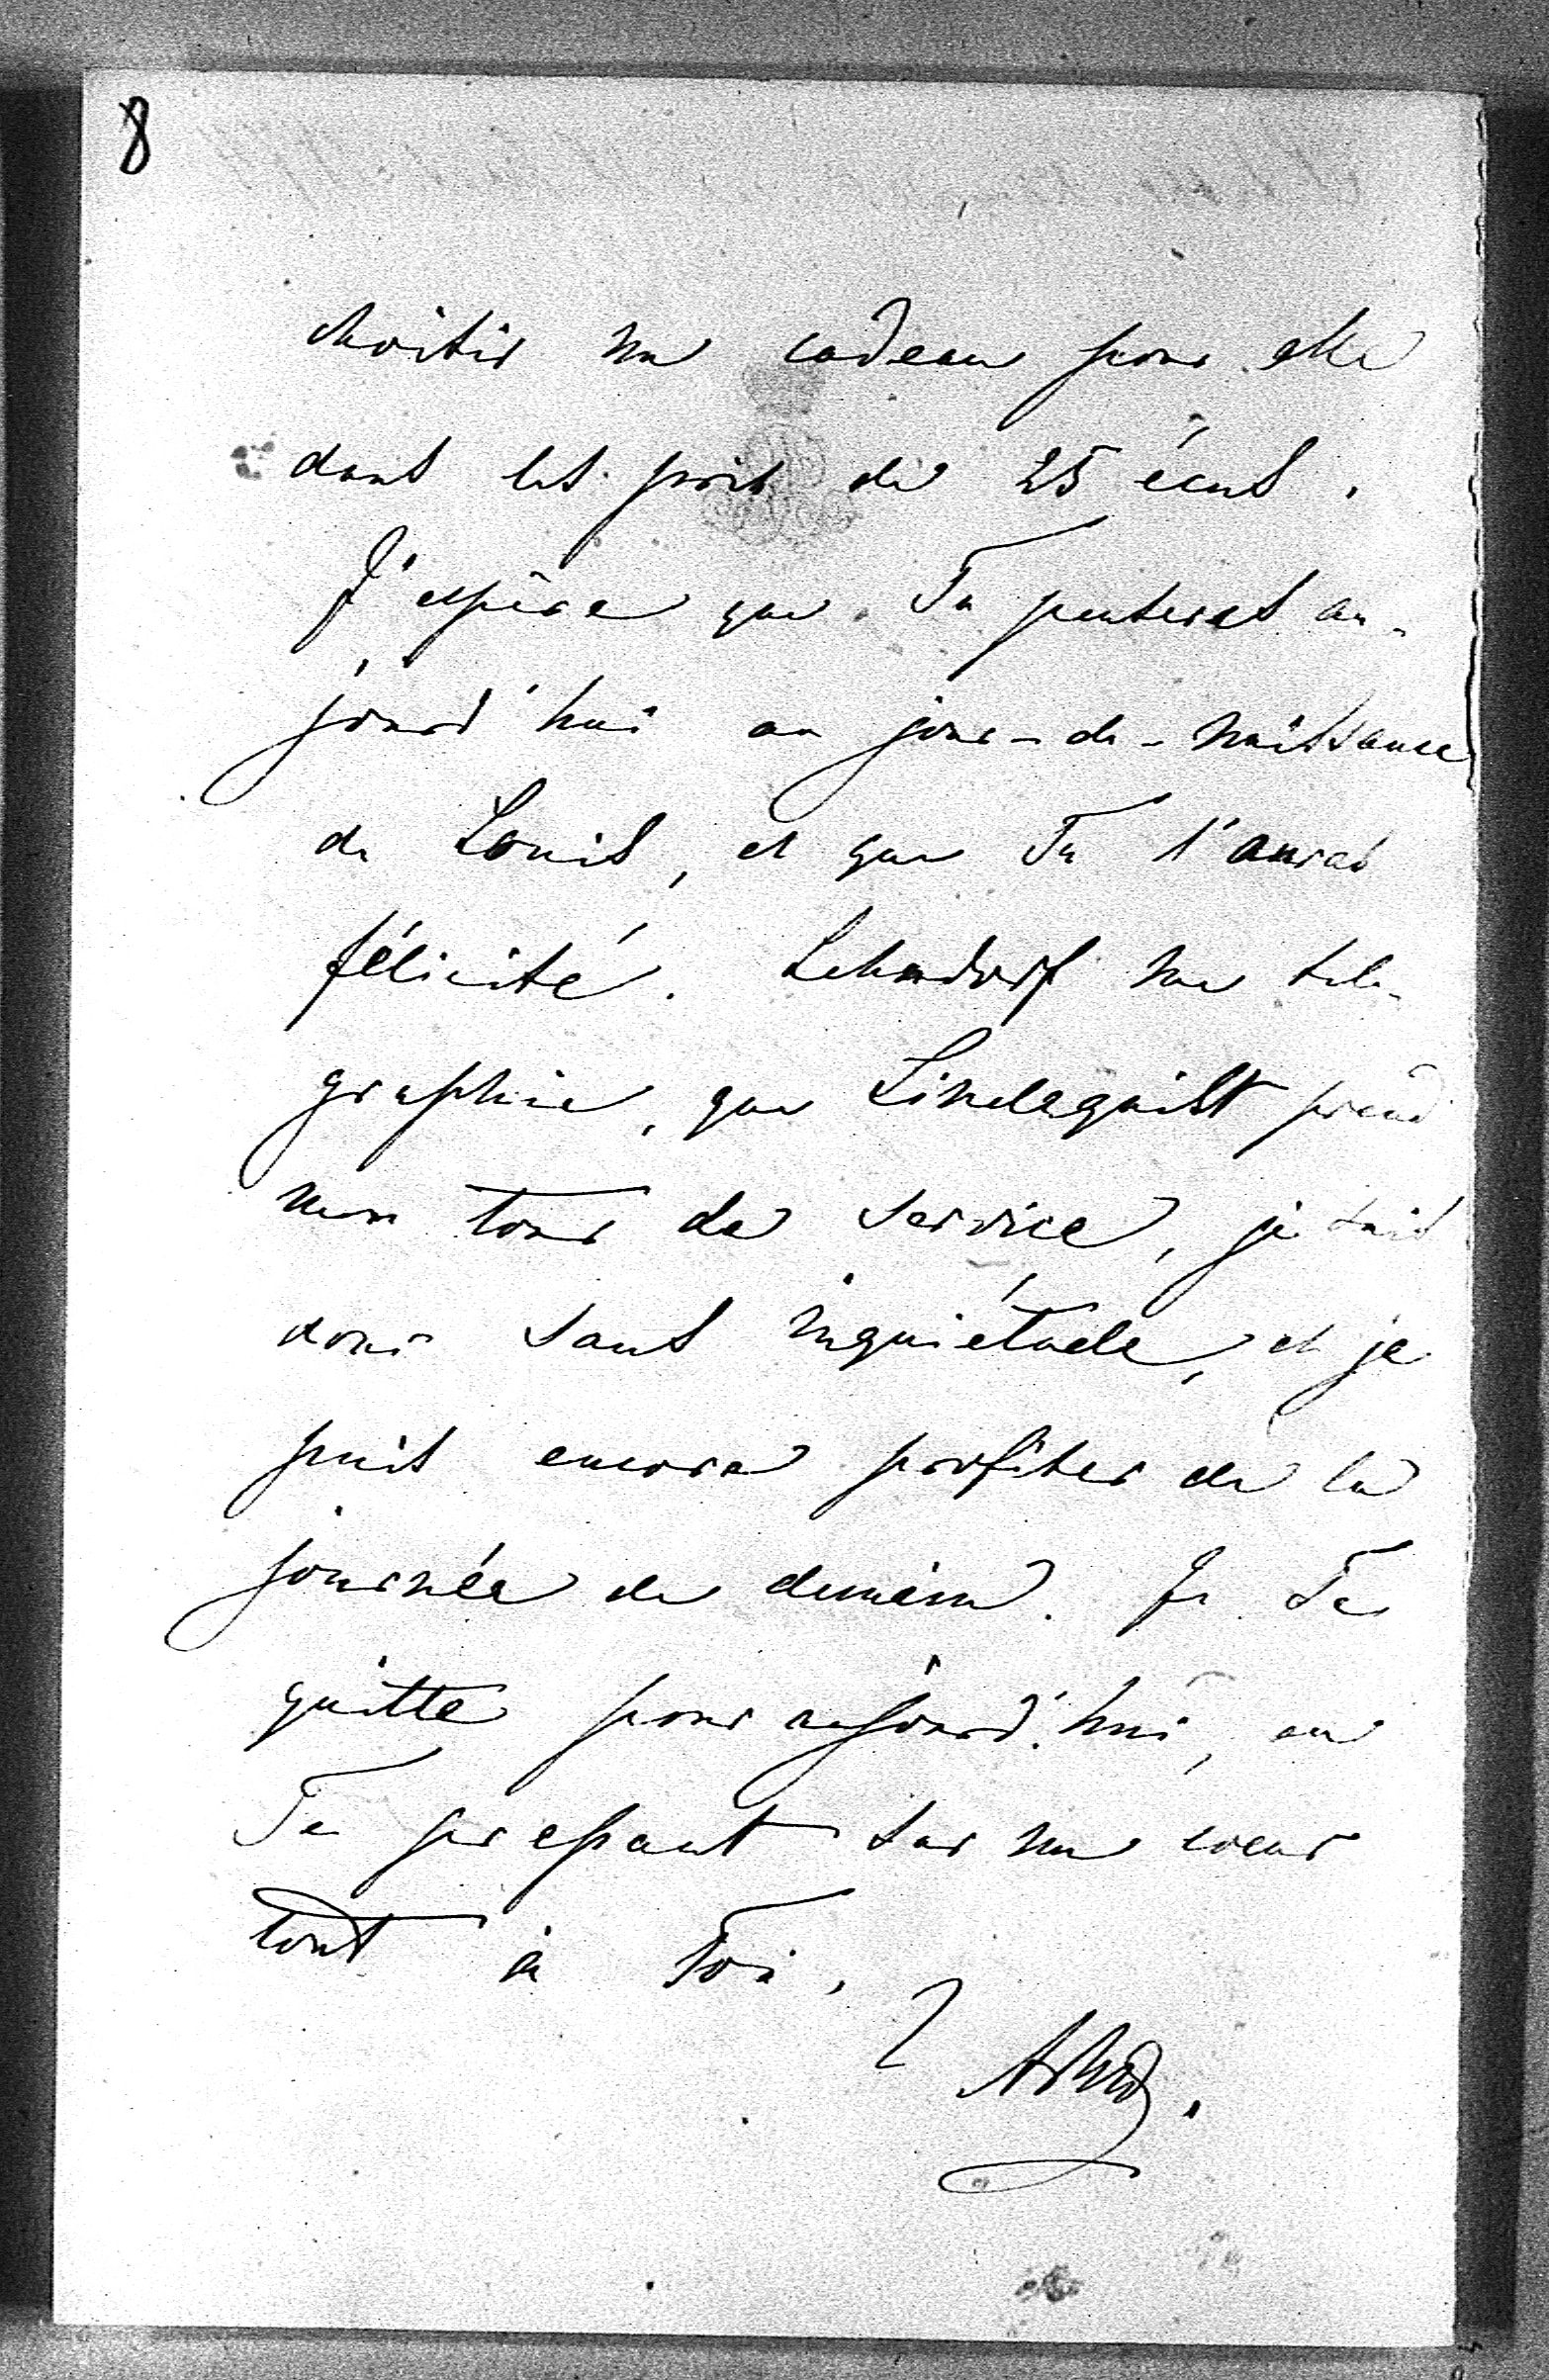 8
choisir un cadeau pour elle
dans les prix de 25 écus.
J'espère que Tu penseras au-
jourd'hui au jour-de-naissance
de Louis, et que Tu l'auras
félicité. Lehndorf me tele-
graphie, que Lindequist prend
mon tour de service, je suis
donc sans inquiétude, et je
puis encore profiter de la
journée de demain. Je Te
quitte pour aujourd'hui, en
Te pressant sur mon coeur
tout à Toi.